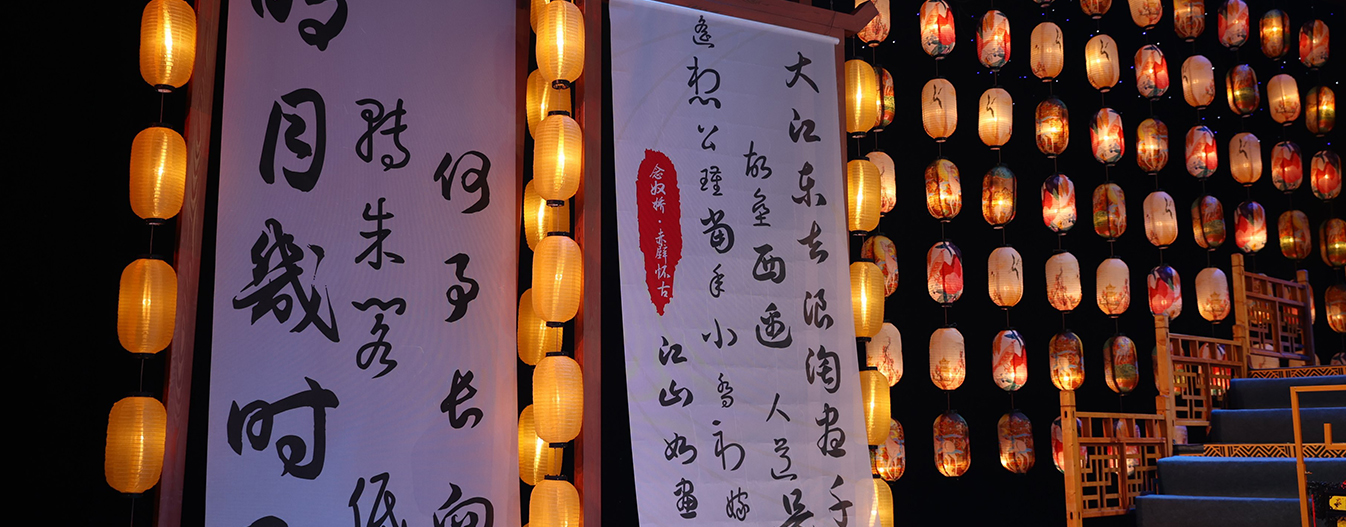 大江东去浪淘尽千
故垒西邊人道是
遥想公瑾當年小喬初嫁
江山如畫
念奴娇·赤壁怀古
何事长向
轉朱阁低
明月幾时